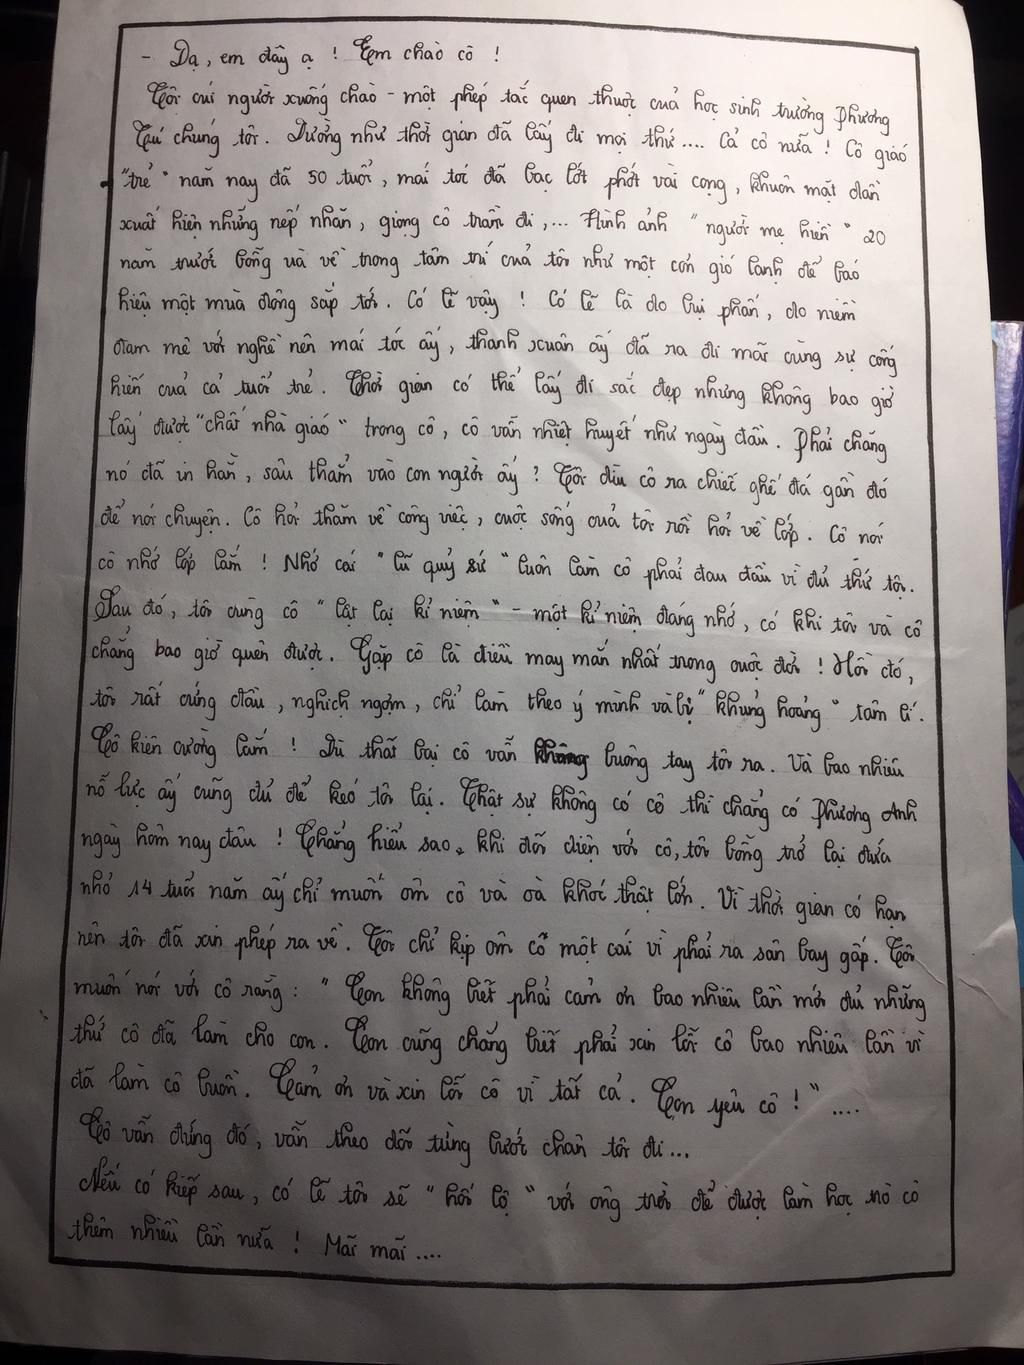 - Dạ, em đây ạ ! Em chào cô !
Tôi cúi người xuống chào - một phép tắc quen thuộc của học sinh trường Phương
Tú chúng tôi. Dường như thời gian đã lấy đi mọi thứ.... Cả cô nữa ! Cô giáo
"trẻ" năm nay đã 50 tuổi, mái tóc đã bạc lớt phớt vài cọng, khuôn mặt dần
xuất hiện những nếp nhăn, giọng cô trầm đi,... Hình ảnh "người mẹ hiền" 20
năm trước bỗng ùa về trong tâm trí của tôi như một cơn gió lạnh để báo
hiệu một mùa đông sắp tới. Có lẽ vậy ! Có lẽ là do bụi phấn, do niềm
đam mê với nghề nên mái tóc ấy, thanh xuân ấy đã ra đi mãi cùng sự cống
hiến của cả tuổi trẻ. Thời gian có thể lấy đi sắc đẹp nhưng không bao giờ
lấy được "chất nhà giáo" trong cô, cô vẫn nhiệt huyết như ngày đầu. Phải chăng
nó đã in hằn, sâu thẳm vào con người ấy ? Tôi dìu cô ra chiếc ghế đá gần đó
để nói chuyện. Cô hỏi thăm về công việc, cuộc sống của tôi rồi hỏi về lớp. Cô nói
cô nhớ lớp lắm ! Nhớ cái "lũ quỷ sứ" luôn làm cô phải đau đầu vì đủ thứ tội.
Sau đó, tôi cùng cô "lật lại kỉ niệm" - một kỉ niệm đáng nhớ, có khi tôi và cô
chẳng bao giờ quên được. Gặp cô là điều may mắn nhất trong cuộc đời ! Hồi đó,
tôi rất cứng đầu, nghịch ngợm, chỉ làm theo ý mình và bị "khủng hoảng" tâm lí.
Cô kiên cường lắm ! Dù thất bại cô vẫn không buông tay tôi ra. Và bao nhiêu
nỗ lực ấy cũng đủ để kéo tôi lại. Thật sự không có cô thì chẳng có Phương Anh
ngày hôm nay đâu ! Chẳng hiểu sao, khi đối diện với cô, tôi bỗng trở lại đứa
nhỏ 14 tuổi năm ấy chỉ muốn ôm cô và oà khóc thật lớn. Vì thời gian có hạn
nên tôi đã xin phép ra về. Tôi chỉ kịp ôm cô một cái vì phải ra sân bay gấp. Tôi
muốn nói với cô rằng: "Con không biết phải cảm ơn bao nhiêu lần mới đủ những
thứ cô đã làm cho con. Con cũng chẳng biết phải xin lỗi cô bao nhiêu lần vì
đã làm cô buồn. Cảm ơn và xin lỗi cô vì tất cả. Con yêu cô !"....
Cô vẫn đứng đó, vẫn theo dõi từng bước chân tôi đi...
Nếu có kiếp sau, có lẽ tôi sẽ "hối lộ" với ông trời để được làm học trò cô
thêm nhiều lần nữa ! Mãi mãi....